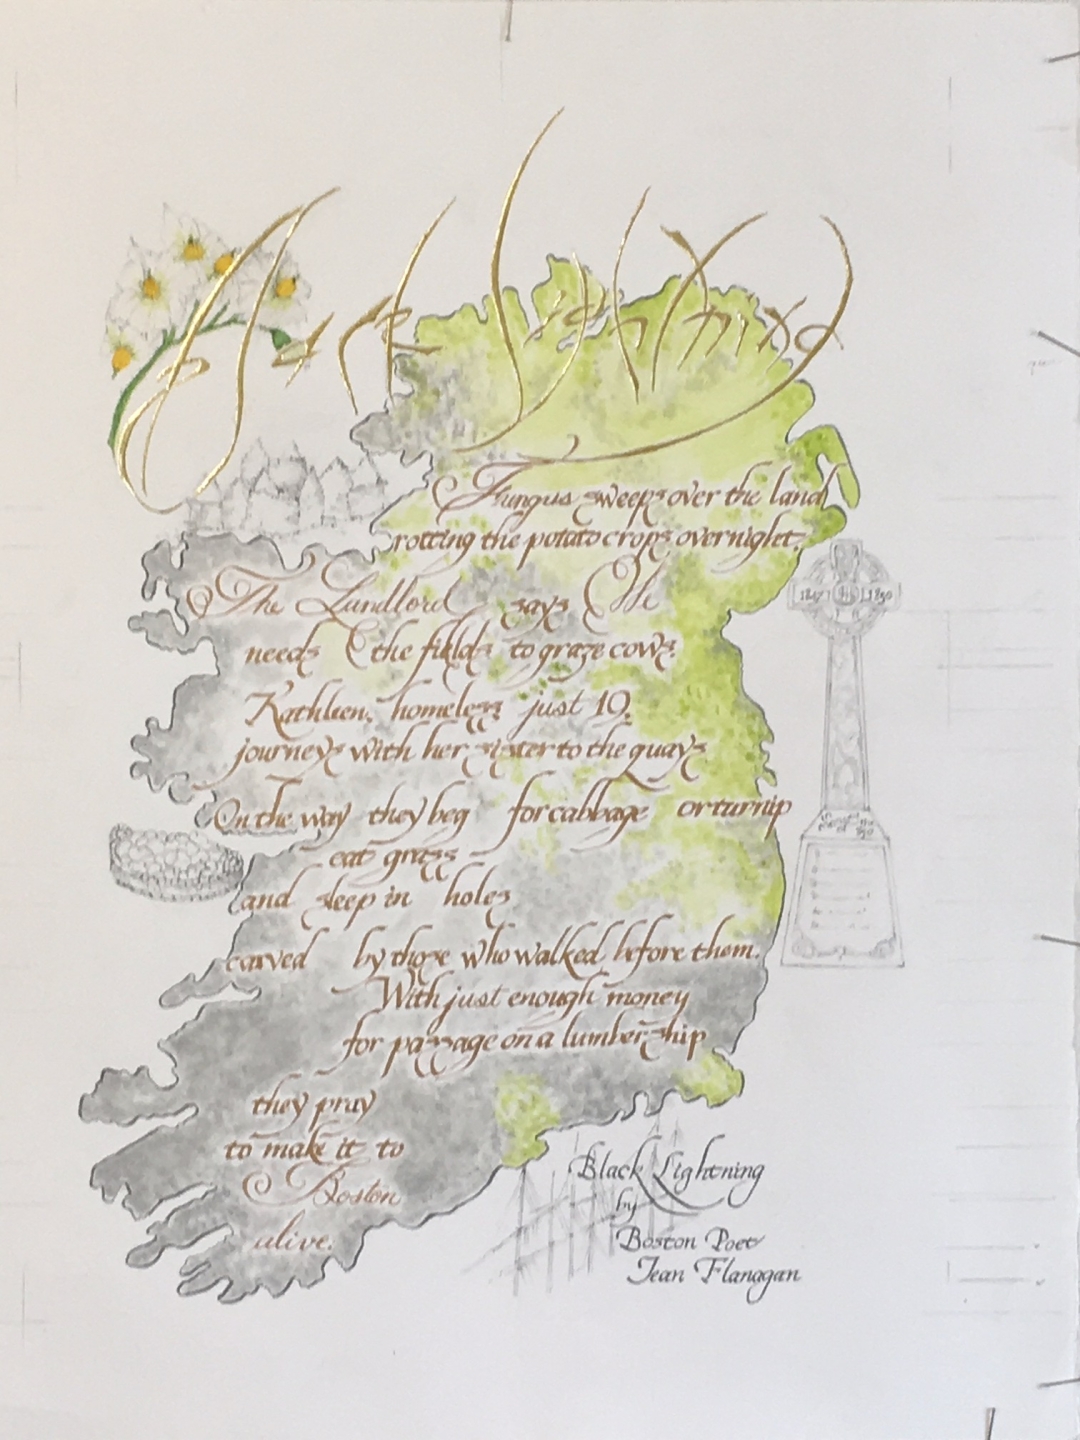 Black Lightning
Fungus sweeps over the land
rotting the potato crops overnight.
The Landlord says He
needs the fields to graze cows.
Kathleen, homeless just 19,
journeys with her sister to the quays
On the way they beg for cabbage or turnip
eat grass
and sleep in holes
carved by those who walked before them.
With just enough money
for passage on a lumber ship
they pray
to make it to
Boston
alive.
1847 1850
Black Lightning
by
Boston Poet
Jean Flanagan